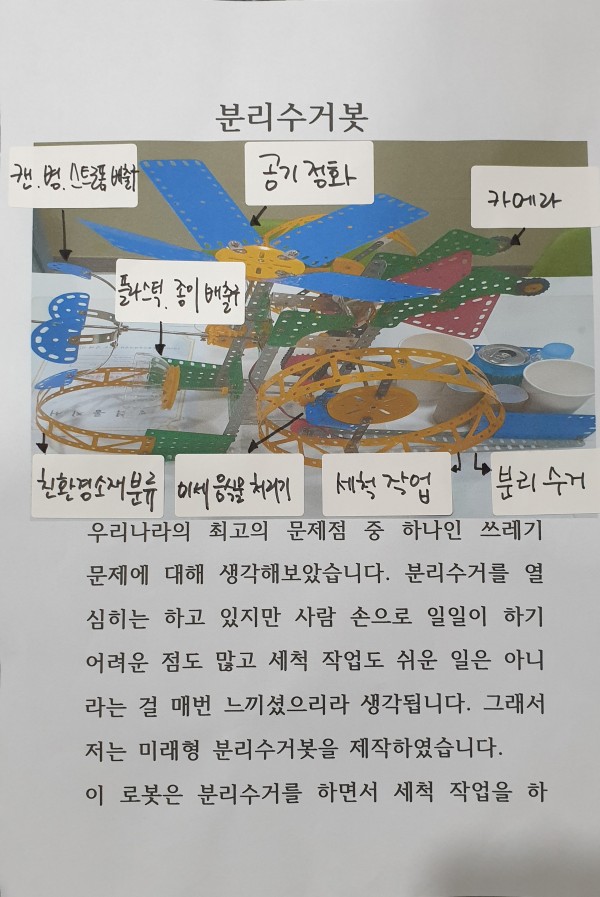 분리수거봇
캔.병.스트로폼 배출구
공기 정화
카메라
플라스틱.종이 배출구
친환경소재 분류
미세 음식물 처리기
세척 작업
분리 수거
우리나라의 최고의 문제점 중 하나인 쓰레기
문제에 대해 생각해보았습니다. 분리수거를 열
심히는 하고 있지만 사람 손으로 일일이 하기
어려운 점도 많고 세척 작업도 쉬운 일은 아니
라는 걸 매번 느끼셨으리라 생각됩니다. 그래서
저는 미래형 분리수거봇을 제작하였습니다.
이 로봇은 분리수거를 하면서 세척 작업을 하